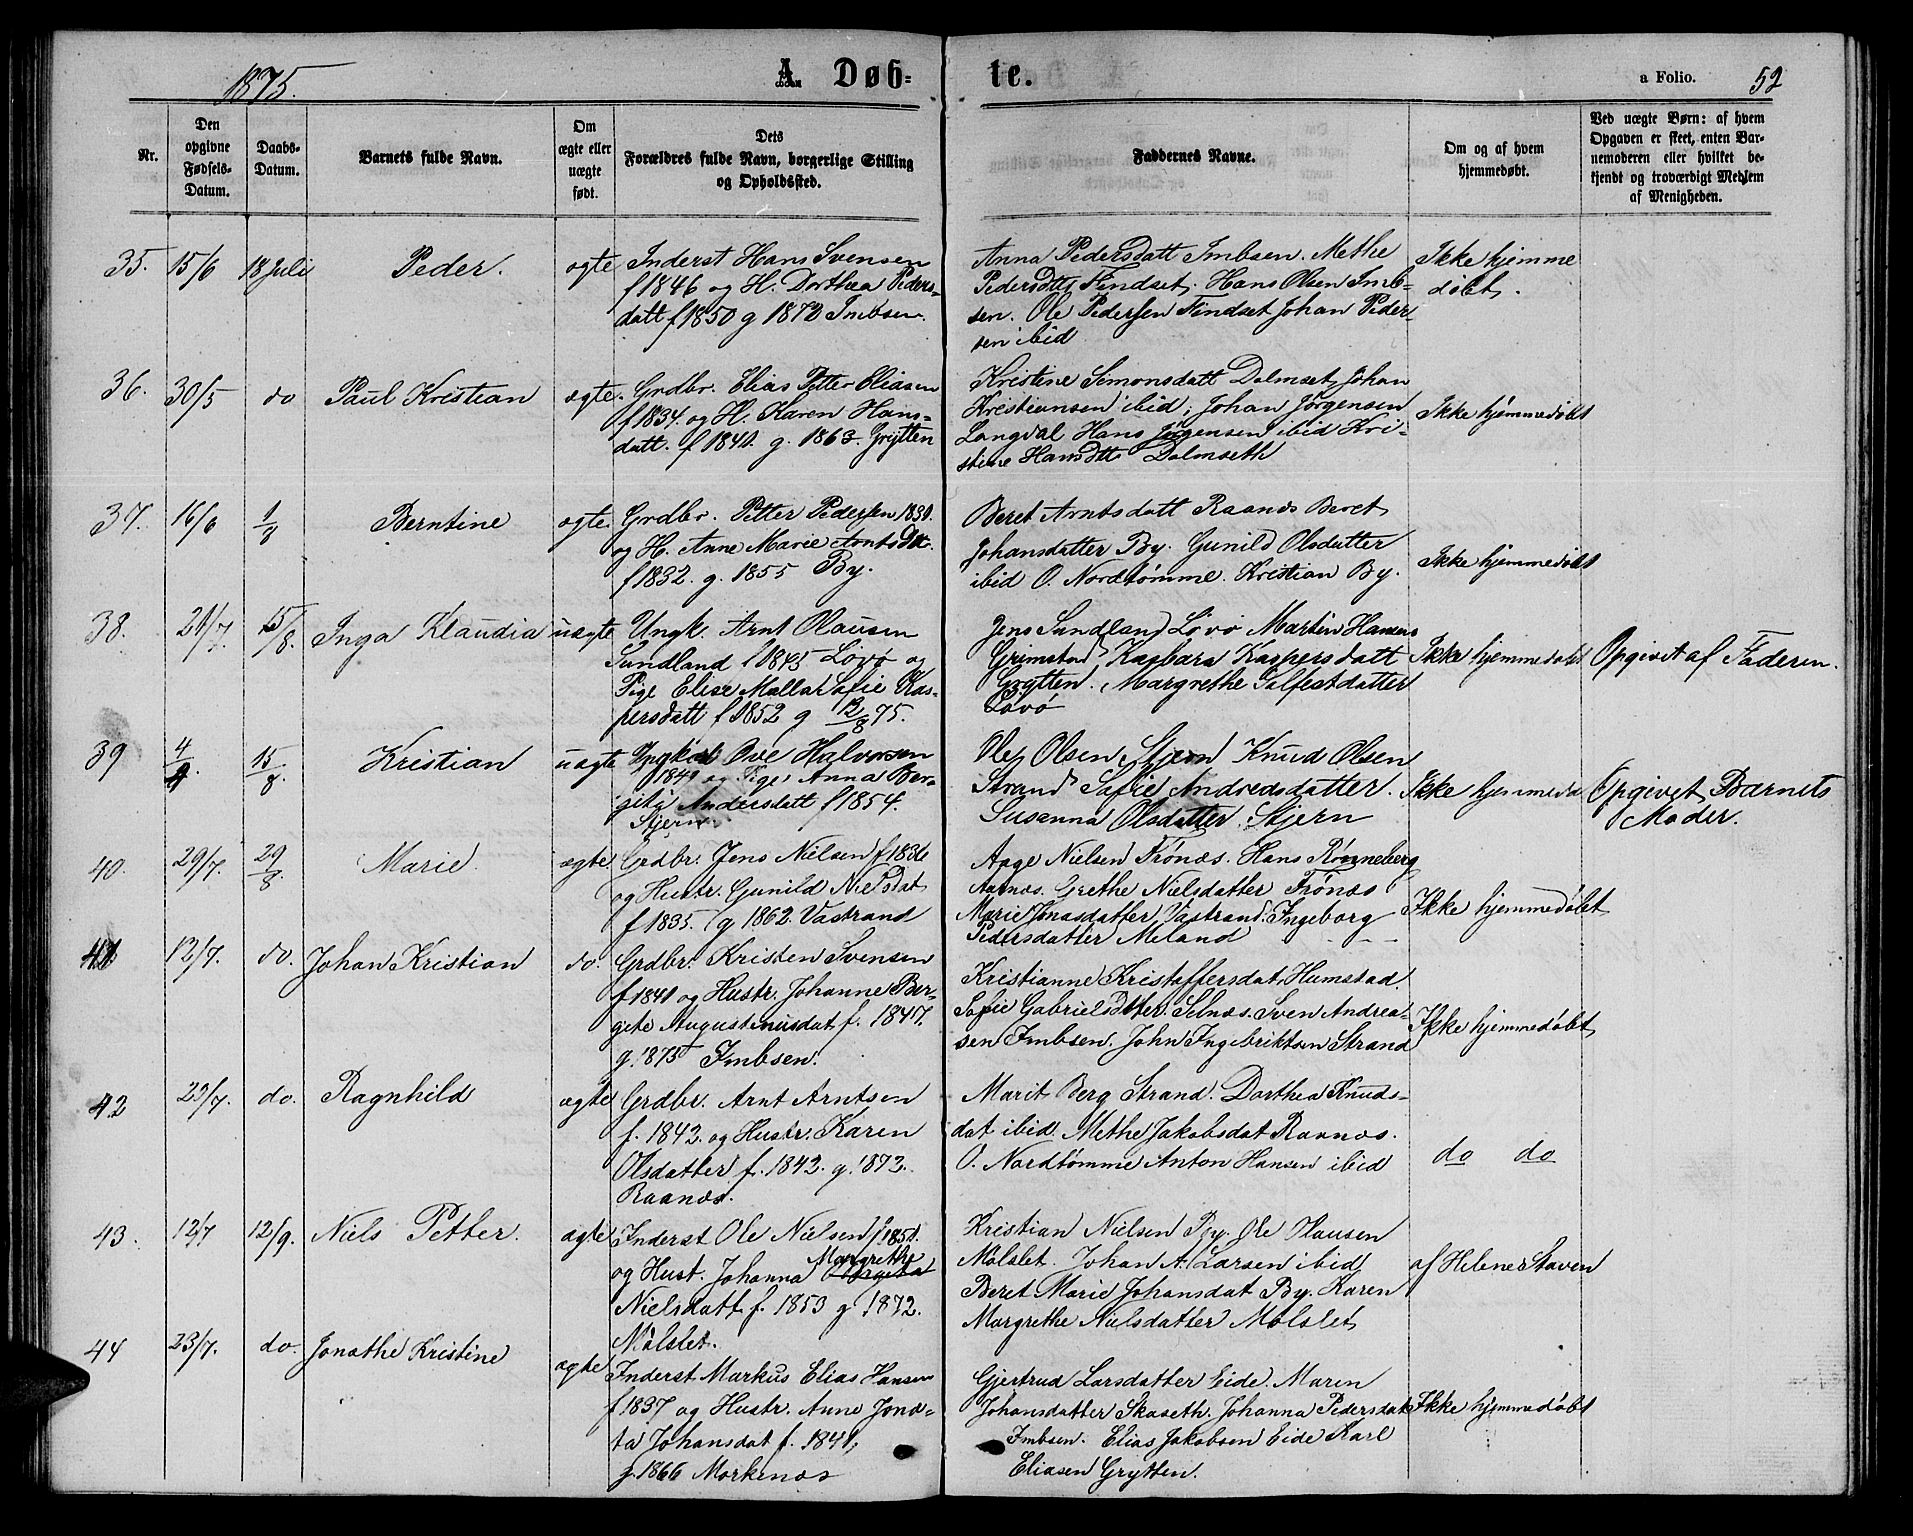 1875.
A. Døb-
te.
a Folio.
52
Nr.
Den
opgivne
Fødsels-
Datum.
Daabs-
Datum.
Barnets fulde Navn.
Om
ægte eller
uægte
født.
Dets
Forældres fulde Navn, borgerlige Stilling
og Opholdssted.
Faddernes Navne.
Om og af hvem
hjemmedøbt.
Ved uægte Børn: af hvem
Opgaven er skeet, enten Bar-
nemoderen eller hvilket be-
kjendt og troværdigt Medlem
af Menigheden.
35. 15/6 18 Juli Peder. ægte
Inderst Hans Svensen
f 1846 og H. Dorthea Peders-
datt f 1850 g 1872 Imbsen.
Anna Pedersdatt Imbsen. Methe
Pedersdtt Findset. Hans Olsen Imb-
sen. Ole Pedersen Findset Johan Peder-
sen ibid
Ikke hjemme
døbt.
36. 30/5 do Paul Kristian ægte.
Grdbr. Elias Petter Eliasen
f 1834. og H. Karen Hans-
datt. f 1840. g. 1863. Grytten
Kristine Simonsdatt Dalmset Johan
Kristiansen ibid, Johan Jørgensen
Langdal Hans Jørgensen ibid Kri-
stine Hansdtt Dalmseth
Ikke hjemmedøbt
37. 16/6 1/8 Berntine ægte
Grdbr. Petter Pedersen 1830.
og H. Anne Marie Arntsdtt.
f 1832. g. 1855 By.
Beret Arntsdatt Raanes Beret
Johansdatter By. Gunild Olsdatter
ibid O. Nordtømme. Kristian By.
Ikke hjemmedøbt
38. 21/7. 15/8. Inga Klaudia uægte
Ungk. Arnt Olausen
Sundland f 1845 Løvø og
Pige Elise Malla Sofie Kas-
persdatt f 1852 g 12/8 75.
Jens Sundland Løvø Martin Hansens
Grimstad Kasbara Kaspersdatt
Grytten. Margrethe Salfestdatter
Løvø
Ikke hjemmedøbt
Opgivet af Faderen.
39 15/8. Kristian uægte
Ungkarl Ove Halvorsen
1840 og Pige Anna Ber-
gitø Andersdatt f 1854.
Stjern
Ole Olsen Stjern Knud Olsen
Strand Sofie Andreasdatter.
Susanna Olsdatter Stjern
Ikke hjemmedø
Opgivet Barnets
Moder.
40. 29/7. 29/8. Marie. ægte
Grdbr. Jens Nielsen f 1836
og Hustr. Gunild Nielsdat
f 1835. g 1862. Vastrand
Aage Nielsen Trønæs. Hans Rønneberg
Aarnæs. Grethe Nielsdatter Trønæs
Marie Jonasdatter Vastrand. Ingeborg
Pedersdatter Meland
Ikke hjemmedøbt
41 12/7. do. Johan Kristian do.
Grdbr. Kristen Svensen
f 1840 og Hustr. Johanne Ber-
gete Augustinusdat f. 1847.
g. 1875 Imbsen.
Kristianne Kristoffersdat Humstad.
Sofie Gabrielsdtter. Selnæs. Sven Andrea-
sen Imbsen. John Ingebriktsen Strand
Ikke hjemmedøbt
42 23/7. do. Ragnhild ægte
Grdbr. Arnt Arntsen
f. 1842. og Hustr. Karen
Olsdatter f. 1842. g. 1872.
Raanæs.
Marit Berg Strand. Dorthea Knuds-
dat ibid. Methe Jakobsdat Raanæs.
O. Nordtømme Anton Hansen ibid
do do
43. 12/7 12/9. Niels Petter. ægte
Inderst Ole Nielsen f 1850.
Margrethe
og Hust. Johanna
Nielsdatt f. 1853 g 1872.
Mølslet.
Kristian Nielsen By. Ole Olausen
Mølslet. Johan A. Larsen ibid
Beret Marie Johansdat By. Karen
Margrethe Nielsdatter Mølslet
af Helene Staven
44 23/7. do. Jonathe Kristine ægte
Inderst Markus Elias Hansen
f 1837 og Hustr. Anne Jona-
ta Johansdat f. 1841,
g. 1866 Morkenæs
Gjertrud Larsdatter Eide. Maren
Johansdatter Skaseth. Johanna Pedersdat
Imbsen. Elias Jakobsen Eide Karl
Eliasen Grytten.
Ikke hjemmedøbt